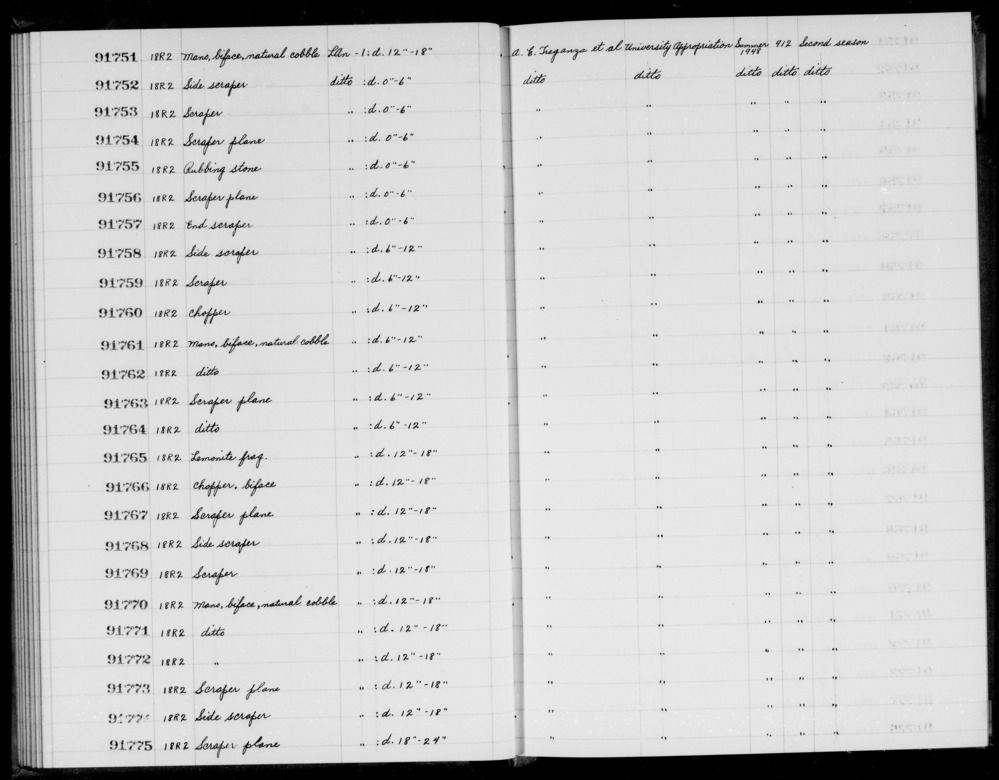 91751 18R2 Mano, biface, natural cobble LAn - 1 : d. 12" - 18" A. E. Treganza et al University Appropriation Summer 1948 912 Second season
91752 18R2 Side scraper ditto : d. 0" - 6" ditto ditto ditto ditto ditto
91753 18R2 Scraper " : d. 0" - 6" " " " " "
91754 18R2 Scraper plane " : d. 0" - 6" " " " " "
91755 18R2 Rubbing stone " : d. 0" - 6" " " " " "
91756 18R2 Scraper plane " : d. 0" - 6" " " " " "
91757 18R2 End scraper " : d. 0" - 6" " " " " "
91758 18R2 Side scraper " : d. 6" - 12" " " " " "
91759 18R2 Scraper " : d. 6" - 12" " " " " "
91760 18R2 Chopper " : d. 6" - 12" " " " " "
91761 18R2 Mano, biface, natural cobble " : d. 6" - 12" " " " " "
91762 18R2 ditto " : d. 6" - 12" " " " " "
91763 18R2 Scraper plane " : d. 6" - 12" " " " " "
91764 18R2 ditto " : d. 6" - 12" " " " " "
91765 18R2 Lemonite frag. " : d. 12" - 18" " " " " "
91766 18R2 Chopper, biface " : d. 12" - 18" " " " " "
91767 18R2 Scraper plane " : d. 12" - 18" " " " " "
91768 18R2 Side scraper " : d. 12" - 18" " " " " "
91769 18R2 Scraper " : d. 12" - 18" " " " " "
91770 18R2 Mano, biface, natural cobble " : d. 12" - 18" " " " " "
91771 18R2 ditto " : d. 12" - 18" " " " " "
91772 18R2 " " : d. 12" - 18" " " " " "
91773 18R2 Scraper plane " : d. 12" - 18" " " " " "
91774 18R2 Side scraper " : d. 12" - 18" " " " " "
91775 18R2 Scraper plane " : d. 18" - 24" " " " " "